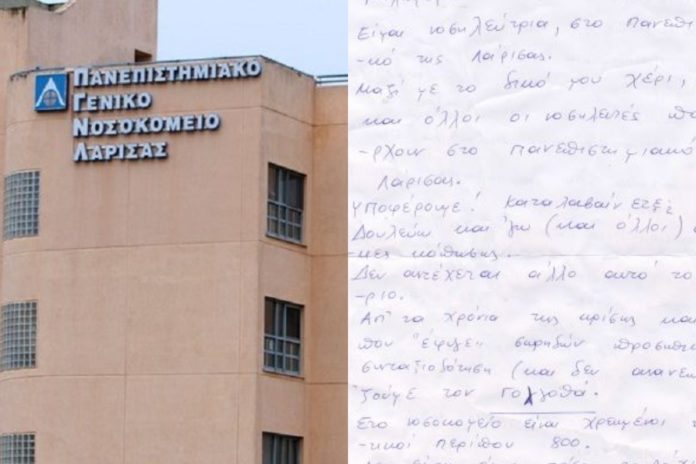 ΠΑΝΕΠΙΣΤΗΜΙΑΚΟ
ΓΕΝΙΚΟ
ΝΟΣΟΚΟΜΕΙΟ
ΛΑΡΙΣΑΣ
Είμαι νοσηλεύτρια, στο Πανεπι
-κό της Λάρισας.
Μαζί με το δικό μου χέρι,
και άλλοι οι νοσηλευτές πο
-ρχουν στο Πανεπιστημιακό
Λάρισας.
Υποφέρουμε!
Δουλεύω και εγώ (και άλλοι)
-κες κόπωσης.
Δεν αντέχεται άλλο αυτό το
-ριο.
Απ' τα χρόνια της κρίσης και
που έφυγε σωρηδών προσωπι
συνταξιοδότηση (και δεν
ζούμε τον Γολγοθά.
Στο νοσοκομείο είναι χρεωμένοι
-κοί περίπου 800.